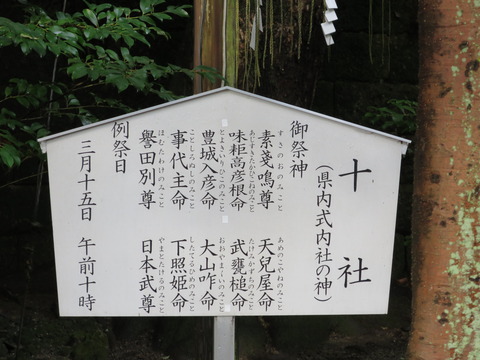 十社
（県内式内社の神）
御祭神
素戔嗚尊 天兒屋命
すさのおのみこと あめのこやねのみこと
味耜高彦根命 武甕槌命
あじすきたかひこねのみこと たけみかずちのみこと
豊城入彦命 大山咋命
とよきいりひこのみこと おおやまくいのみこと
事代主命 下照姫命
ことしろぬしのみこと したてるひめのみこと
譽田別尊 日本武尊
ほむたわけのみこと やまとたけるのみこと
例祭日
三月十五日 午前十時